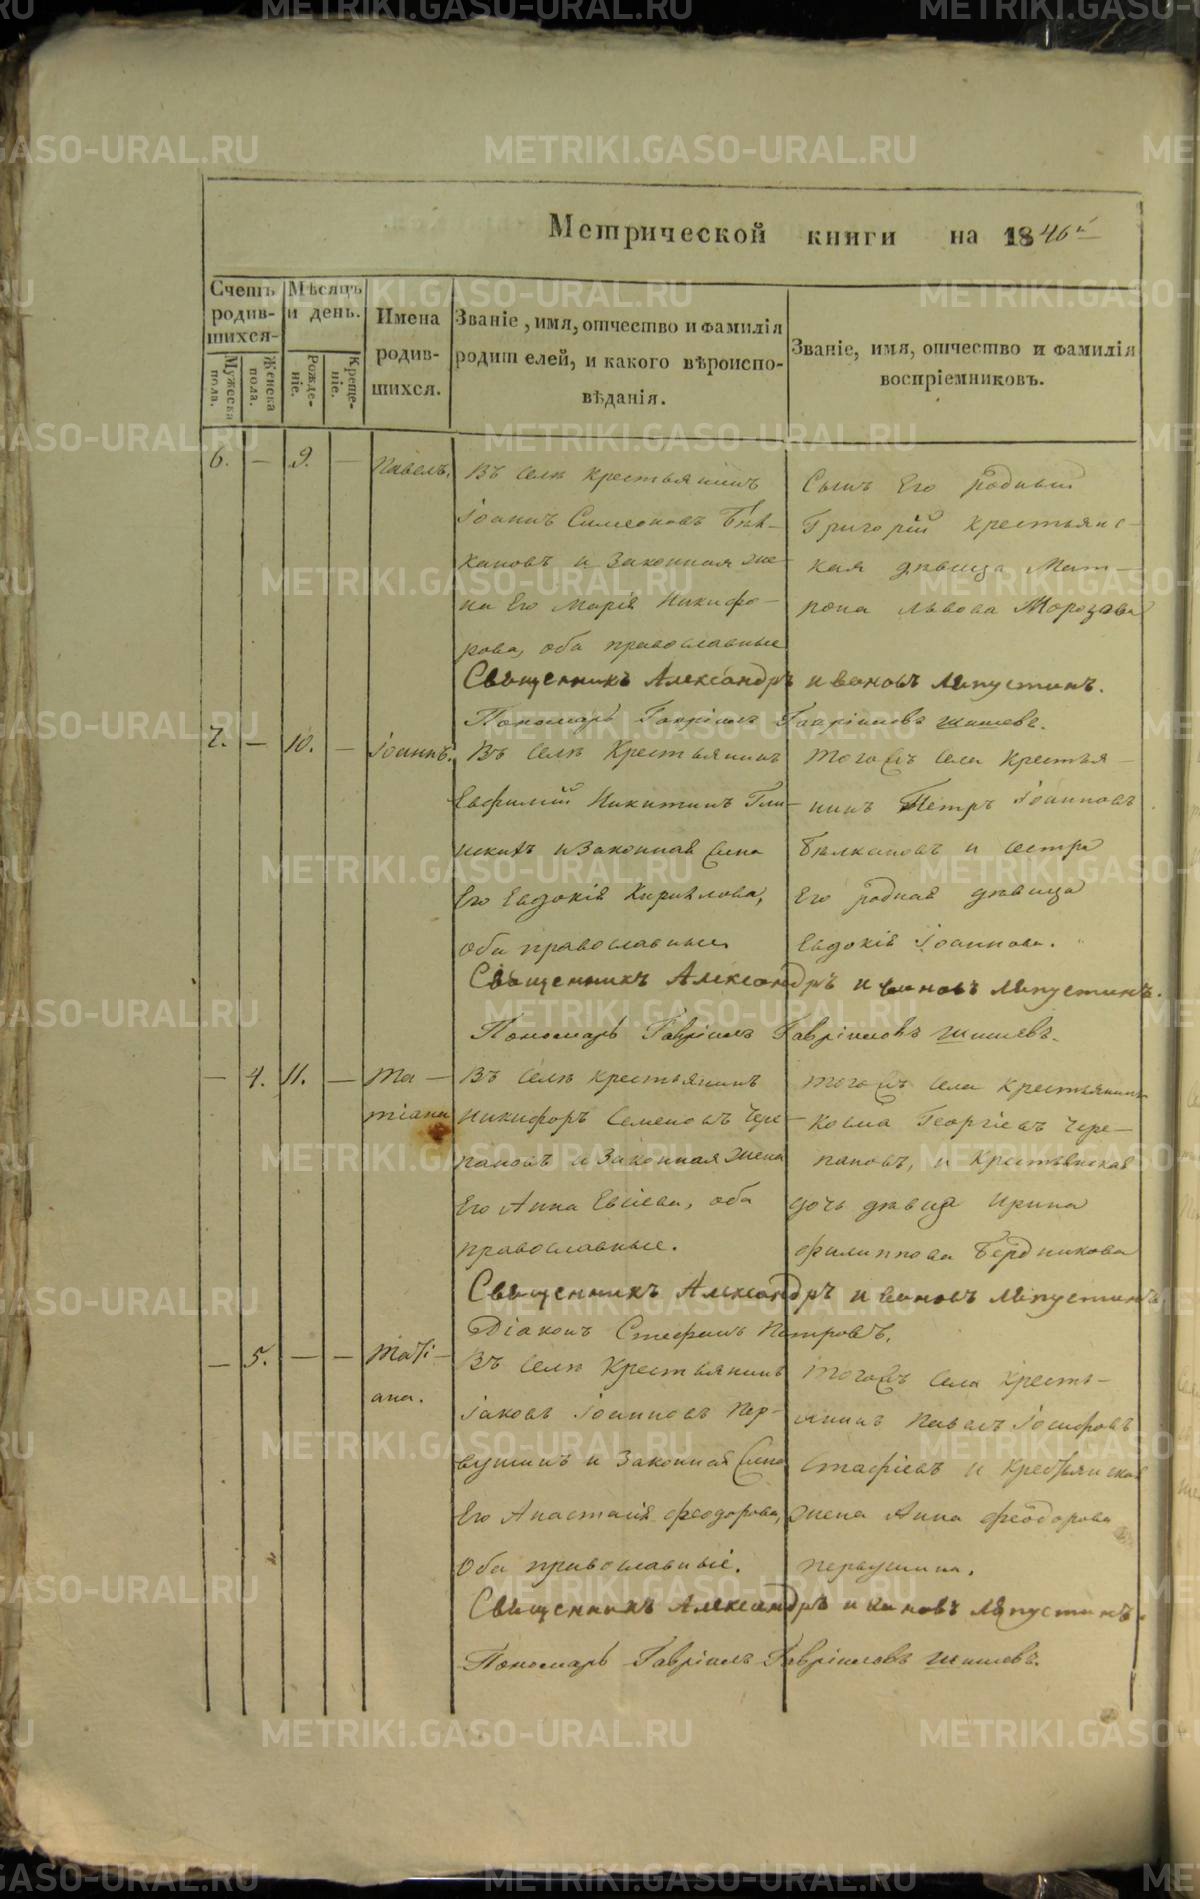 Метрической книги на 1846й
Счетъ родив-шихся.
Мѣсяцъ и день.
Мужеска пола.
Женска пола.
Рожде-ніе.
Креще-ніе.
Имена родив-шихся.
Званіе, имя, отчество и фамилія
родителей, и какого вѣроиспо-
вѣданія.
Званіе, имя, отчество и фамилія
воспріемниковъ.
6. — 9. — Павелъ.
Въ селѣ крестьянинъ
Іоаннъ Симеоновъ Бѣл-
кановъ и Законная же-
на Его Марія Никифо-
рова, оба православные
Сынъ Его родный
Григорій крестьянс-
кая дѣвица Мат-
рона Львова Морозова
Священникъ Александръ Ивановъ Ляпустинъ.
Пономарь Гавріилъ Гавріиловъ Шишевъ.
7. — 10. — Іоаннъ.
Въ селѣ Крестьянинъ
Евфимій Никитинъ Гли-
искихъ и Законная Жена
Его Евдокія Кирилова,
оба православные
тогожъ села крестья-
нинъ Петръ Іоанновъ
Бѣлкановъ и сестра
Его родная дѣвица
Евдокія Іоаннова.
Священникъ Александръ Ивановъ Ляпустинъ.
Пономарь Гавріилъ Гавріиловъ Шишевъ.
— 4. 11. — Та-
тіана
Въ селѣ крестьянинъ
Никифоръ Семеновъ Чере-
пановъ и Законная Жена
Его Анна Евсіева, оба
православные.
тогожъ села крестьянинъ
Косма Георгіевъ Чере-
пановъ, и крестьянская
дочь дѣвица Ирина
Филиппова Бердникова
Священникъ Александръ Ивановъ Ляпустинъ
Діаконъ Стефанъ Петровъ.
— 5. — — Таті-
ана.
Въ селѣ Крестьянинъ
Іаковъ Іоанновъ Пер-
вушинъ и Законная Жена
Его Анастасія Феодорова,
Оба православніе.
тогожъ села кресть-
янинъ Павелъ Іосифовъ
Стафіевъ и крестьянская
жена Анна Феодорова
Первушина.
Священникъ Александръ Ивановъ Ляпустинъ.
Пономарь Гавріилъ Гавріиловъ Шишевъ.
METRIKI.GASO-URAL.RU